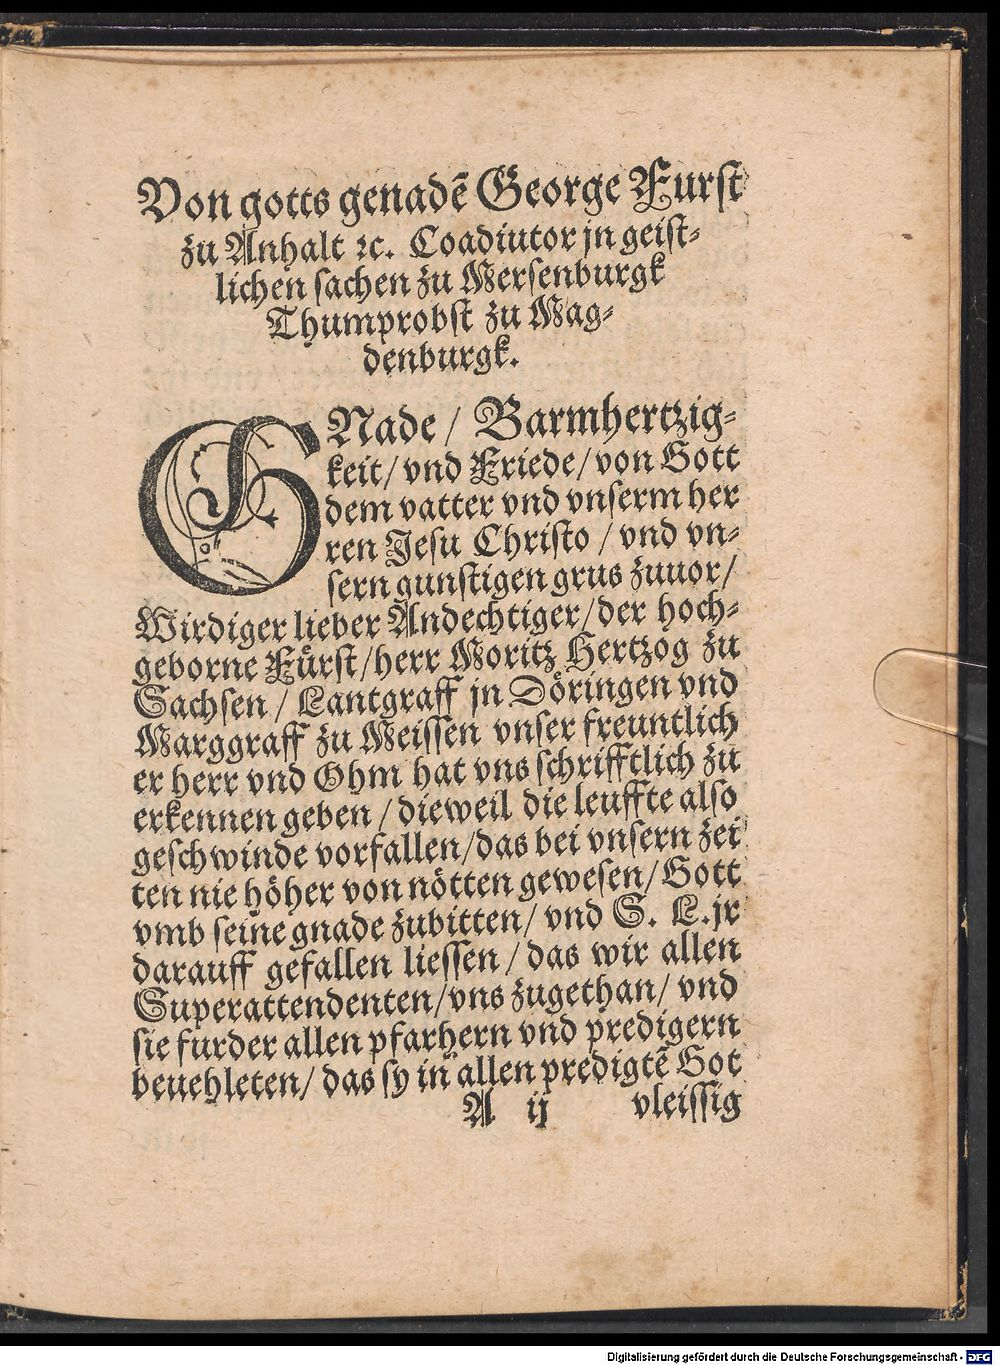 Von gotts genadē George Furst
zu Anhalt ꝛc. Coadiutor jn geist⸗
lichen sachen zu Mersenburgk
Thumprobst zu Mag⸗
denburgk.
GNade / Barmhertzig⸗
keit / vnd Friede / von Gott
dem vatter vnd vnserm her
ren Jesu Christo / vnd vn⸗
sern gunstigen grus zuuor /
Wirdiger lieber Andechtiger / der hoch⸗
geborne Fürst / herr Moritz Hertzog zu
Sachsen / Lantgraff jn Döringen vnd
Marggraff zu Meissen vnser freuntlich
er herr vnd Ohm hat vns schrifftlich zu
erkennen geben / dieweil die leuffte also
geschwinde vorfallen / das bei vnsern zei
ten nie höher von nötten gewesen / Gott
vmb seine gnade zubitten / vnd S. L. jr
darauff gefallen liessen / das wir allen
Superattendenten / vns zugethan / vnd
sie furder allen pfarhern vnd predigern
beuehleten / das sy in allen predigtē Got
A ij vleissig
Digitalisierung gefördert durch die Deutsche Forschungsgemeinschaft - DFG